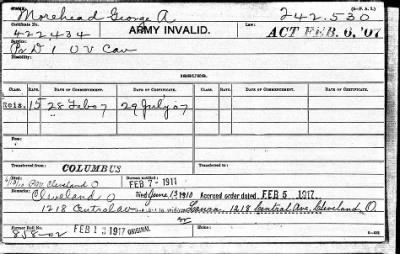 Morehead George A. 242.530
Certificate No. (3-F. A. L.)
422434 ARMY INVALID. Law:
Service: ACT FEB. 6, '07
Pr D 1 O V Cav
Disability:
ISSUES.
CLASS. RATE. DATE OF COMMENCEMENT. DATE OF CERTIFICATE. CLASS. RATE. DATE OF COMMENCEMENT. DATE OF CERTIFICATE. CLASS. RATE. DATE OF COMMENCEMENT. DATE OF CERTIFICATE.
Reis. 15 28 Feb 07 29 July 07
Transferred from: Transferred to:
COLUMBUS
Cleveland O FEB 7-1911
Remarks: Died June 13 1910 Accrued order dated FEB 5 1917
Cleveland O
1218 Central av to widow 1218 Central Ave, Cleveland, O.
Former Roll No.
858-02 FEB 13 1917 ORIGINAL